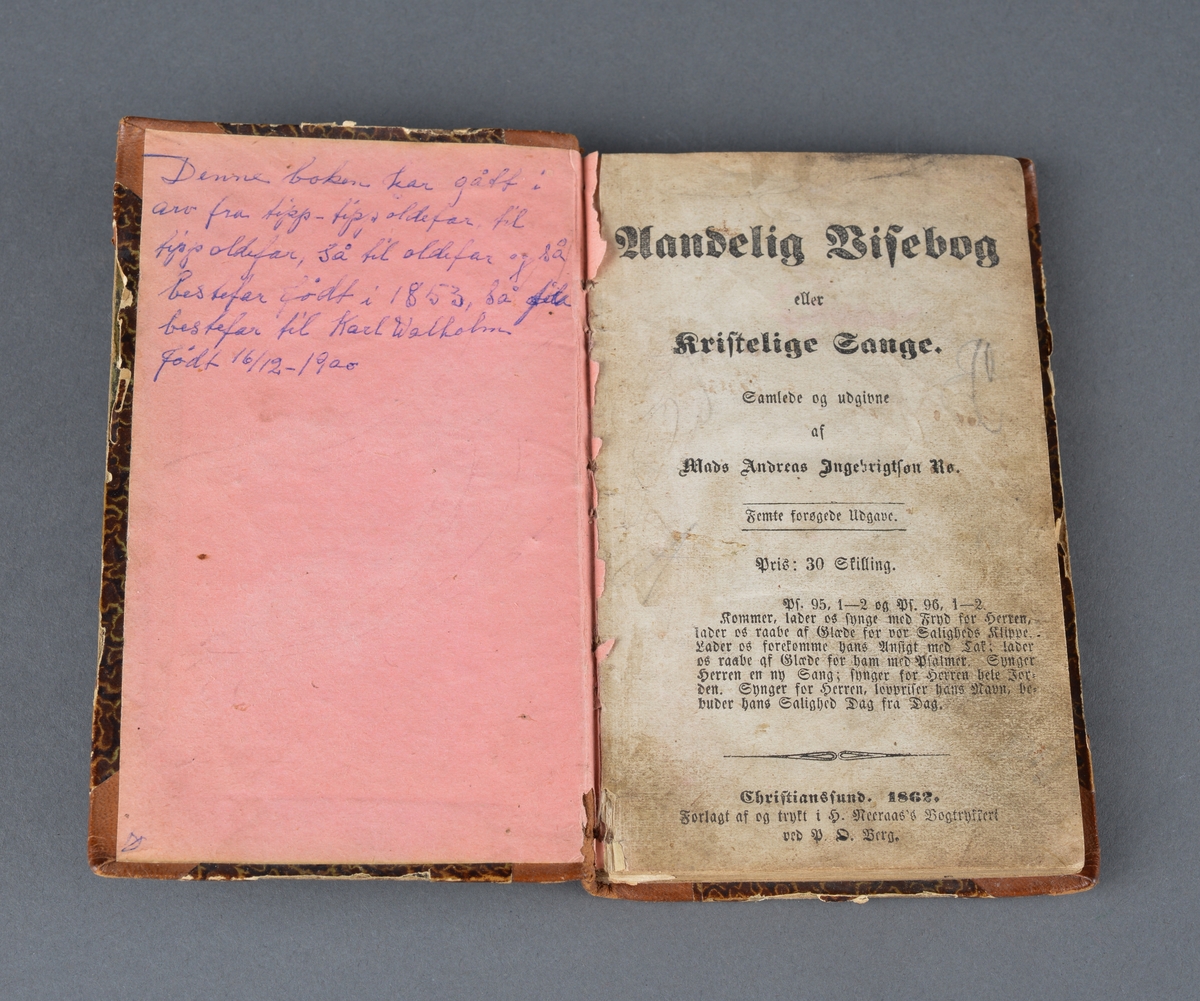 Denne boken har gått i
arv fra tipp-tipp oldefar, til
tipp oldefar, så til oldefar og så
bestefar født i 1853, så
bestefar til Karl Walholm
født 16/12-1900
Aandelig Visebog
eller
Kristelige Sange.
Samlede og udgivne
af
Mads Andreas Ingebrigtsøn Rø.
Femte forøgede Udgave.
Pris: 30 Skilling.
Ps. 95, 1—2 og Ps. 96, 1—2.
Kommer, lader os synge med Fryd for Herren,
lader os raabe af Glæde for vor Saligheds Klippe.
Lader os forekomme hans Ansigt med Tak; lader
os raabe af Glæde for ham med Psalmer. Synger
Herren en ny Sang; synger for Herren hele Jor-
den. Synger for Herren, lovpriser hans Navn, be-
buder hans Salighed Dag fra Dag.
Christianssund. 1862.
Forlagt af og trykt i H. Neeraas's Bogtrykkeri
ved P. O. Berg.